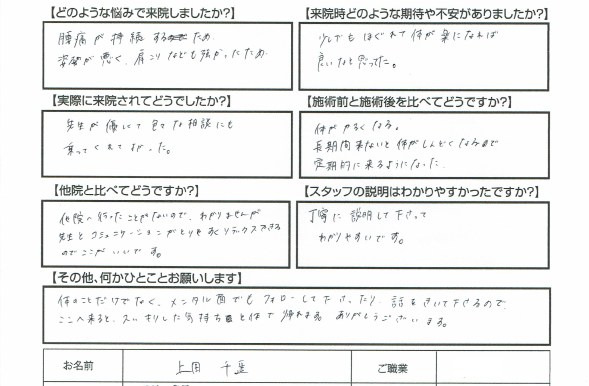 【どのような悩みで来院しましたか?】
腰痛が持続するため
姿勢が悪く、肩こりなども強かったため
【来院時どのような期待や不安がありましたか?】
少しでもほぐれて体が楽になれば
良いなと思った。
【実際に来院されてどうでしたか?】
先生が優しくて色々な相談にも
乗ってくれてよかった。
【施術前と施術後を比べてどうですか?】
体がかるくなる。
長期間来ないと体がしんどくなるので
定期的に来るようになった
【他院と比べてどうですか?】
他院へ行ったことがないので、わかりませんが
先生とコミュニケーションがとりやすくリラックスできる
のでここがいいです。
【スタッフの説明はわかりやすかったですか?】
丁寧に説明して下さって
わかりやすいです。
【その他、何かひとことお願いします】
体のことだけでなく、メンタル面でもフォローして下さったり、話をきいて下さるので、
ここへ来ると、スッキリした気持ちと体で帰れます。ありがとうございます。
お名前
上田 千
ご職業